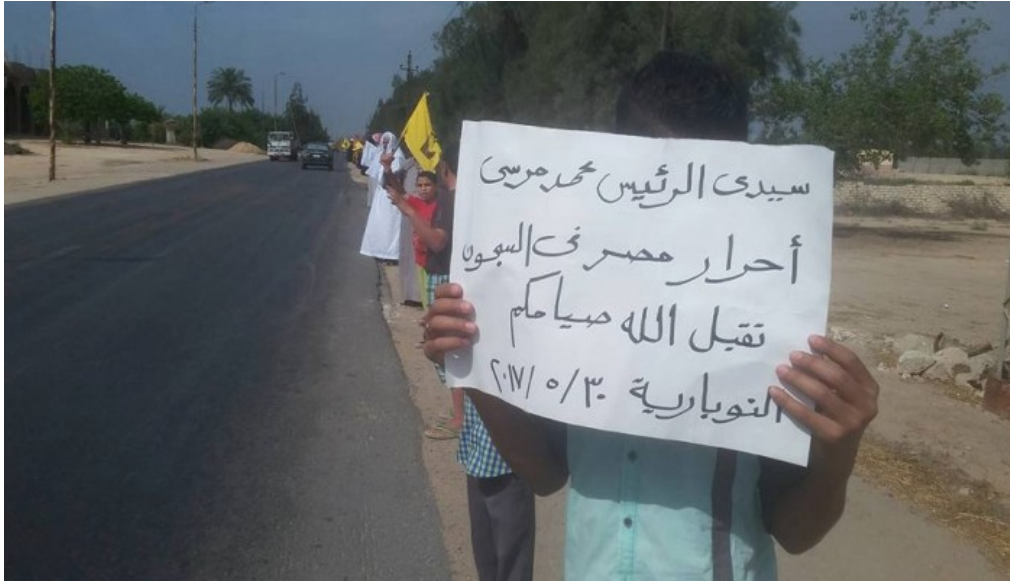 سيدى الرئيس محمد مرسى
أحرار مصر فى السجون
تقبل الله صيامكم
النوبارية ٢٠١٧/٥/٣٠